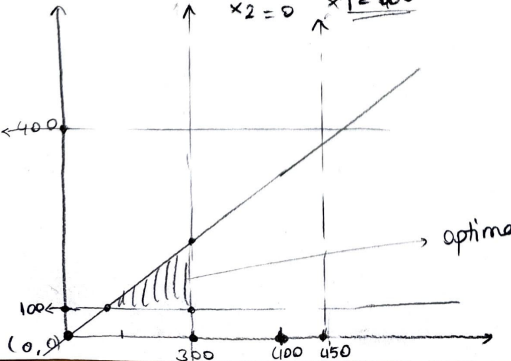 x2 = 0
x1 = 400
400
optima
100
(0,0)
300
400
450